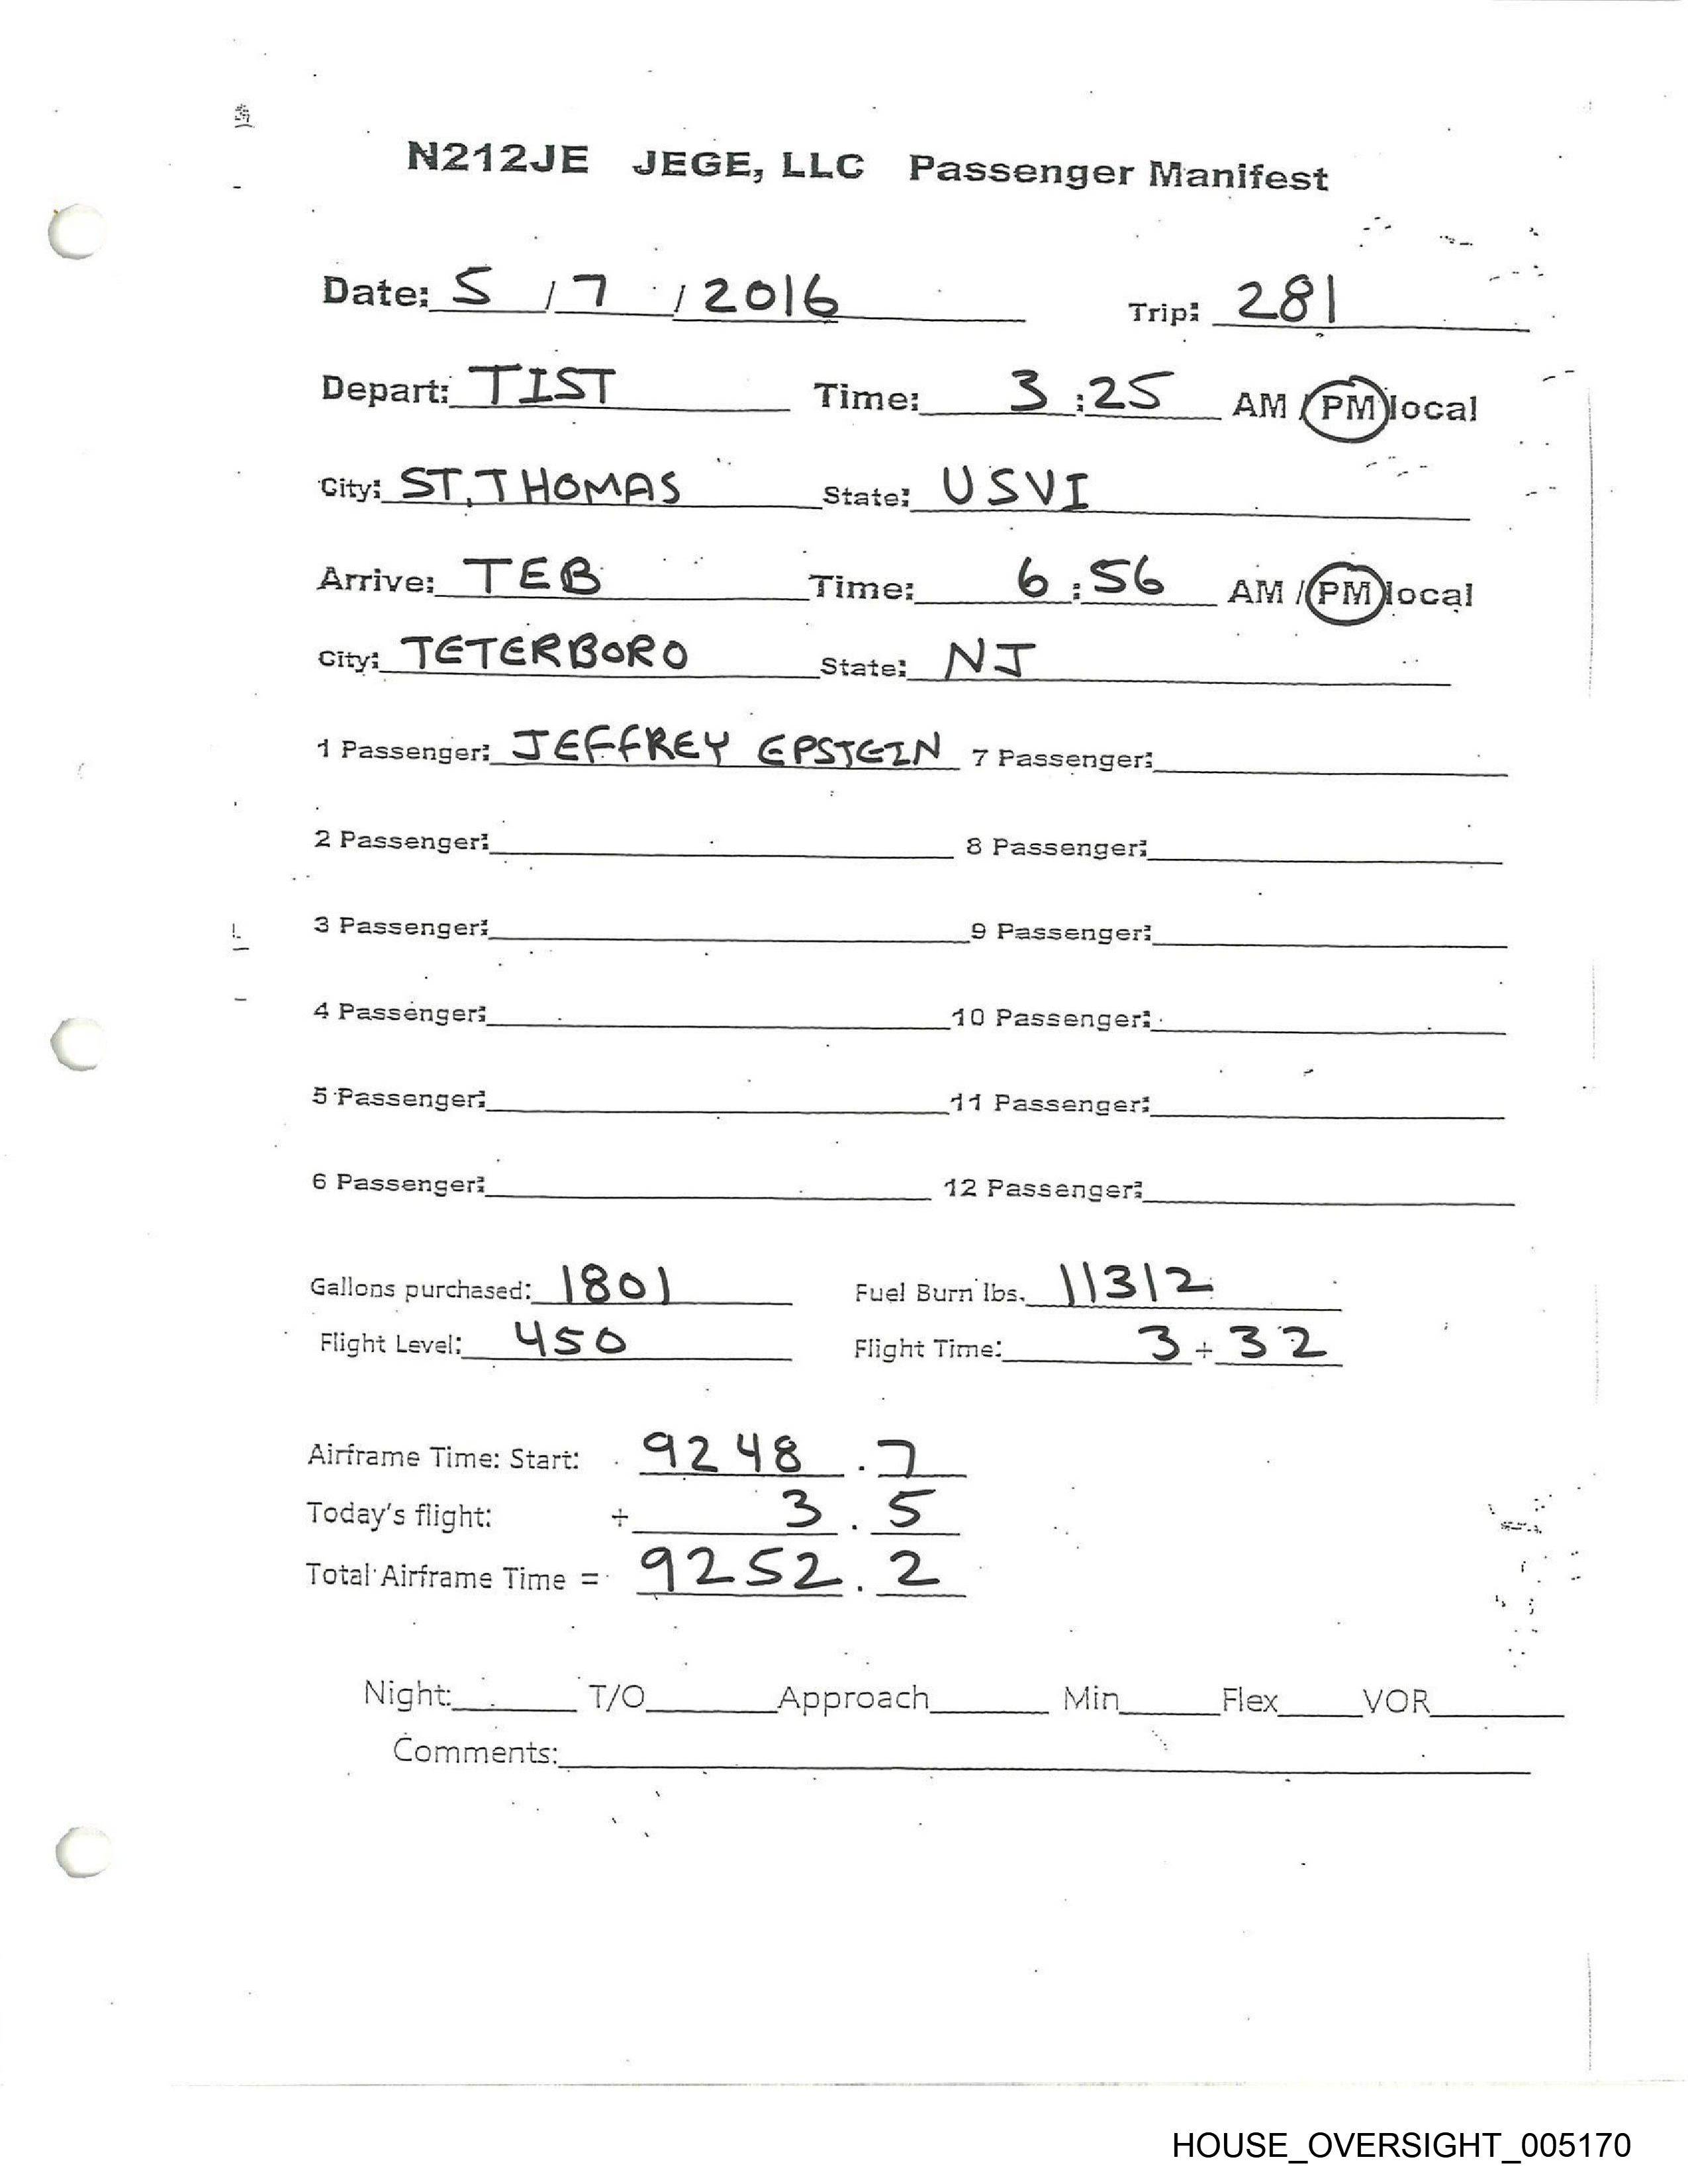 N212JE JEGE, LLC Passenger Manifest
Date: 5 / 7 / 2016 Trip: 281
Depart: TIST Time: 3:25 AM / PM local
City: ST. THOMAS State: USVI
Arrive: TEB Time: 6:56 AM / PM local
City: TETERBORO State: NJ
1 Passenger: JEFFREY EPSTEIN 7 Passenger:
2 Passenger: 8 Passenger:
3 Passenger: 9 Passenger:
4 Passenger: 10 Passenger:
5 Passenger: 11 Passenger:
6 Passenger: 12 Passenger:
Gallons purchased: 1801 Fuel Burn lbs. 11312
Flight Level: 450 Flight Time: 3 + 32
Airframe Time: Start: 9248.7
Today's flight: + 3.5
Total Airframe Time = 9252.2
Night: T/O Approach Min Flex VOR
Comments:
HOUSE_OVERSIGHT_005170